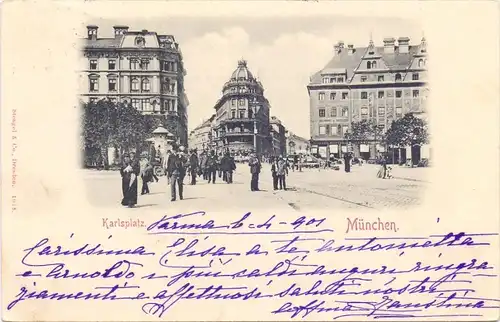 Stengel & Co., Dresden. 1042.
Karlsplatz.
München.
Parma 6-4-901
Carissima Elisa a te Antonietta
e Arnoldo i più caldi auguri ringra
ziamenti e affettuosi saluti nostri
Faustina